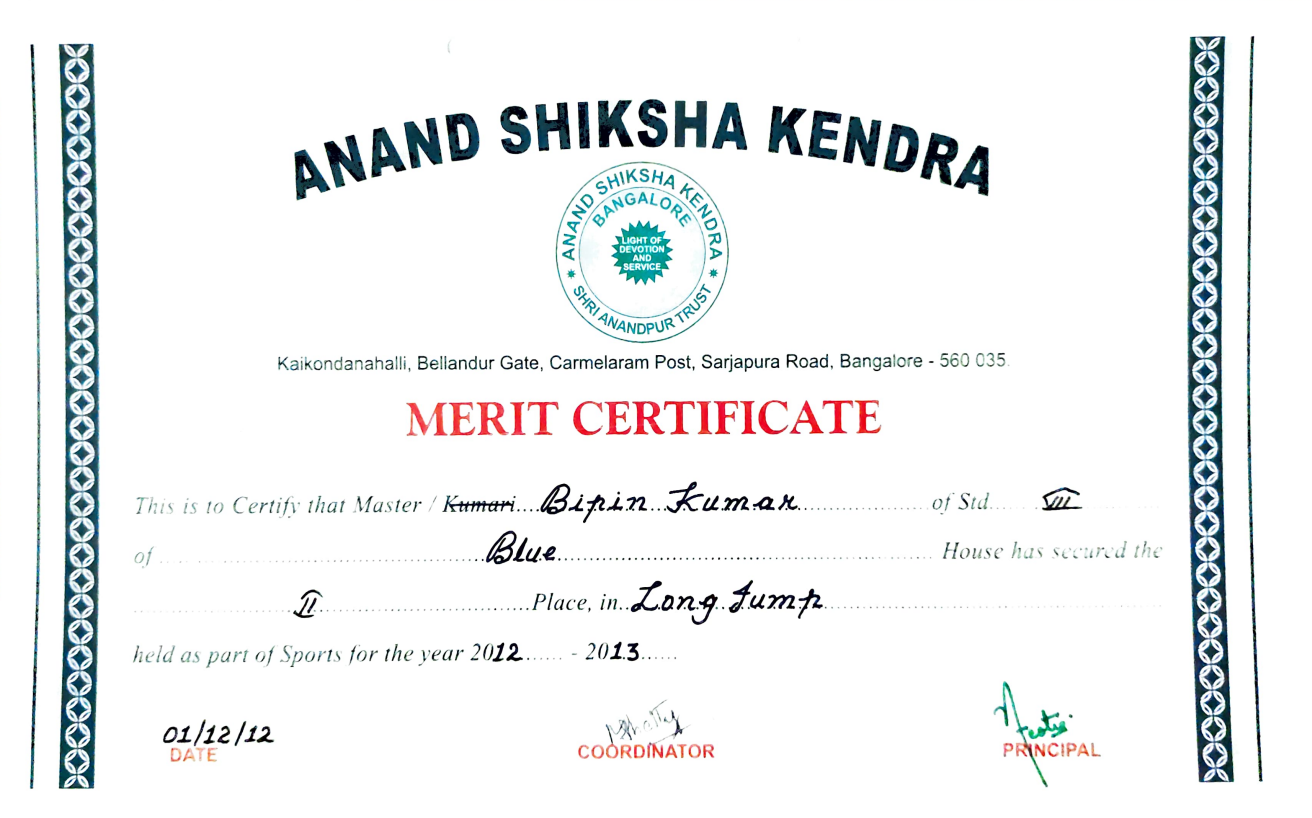 ANAND SHIKSHA KENDRA
ANAND SHIKSHA KENDRA
BANGALORE
LIGHT OF
DEVOTION
AND
SERVICE
SHRI ANANDPUR TRUST
Kaikondanahalli, Bellandur Gate, Carmelaram Post, Sarjapura Road, Bangalore - 560 035.
MERIT CERTIFICATE
This is to Certify that Master / Kumari....Bipin Kumar.................. of Std...... VIII
of ................Blue................ House has secured the
................II................Place, in..Long Jump................
held as part of Sports for the year 2012...... - 2013......
01/12/12
DATE
COORDINATOR
PRINCIPAL